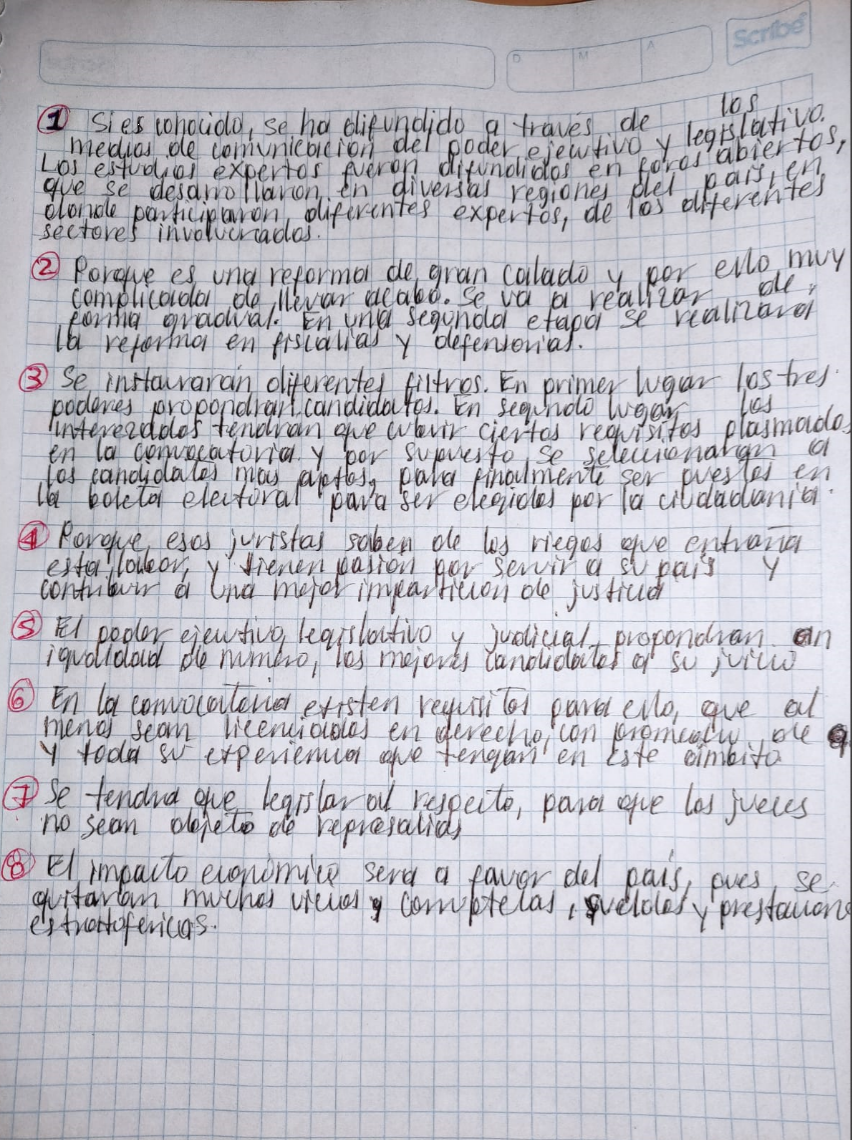 Scribe
D M A
① Si es conocido, se ha difundido a través de los
medios de comunicación del poder ejecutivo y legislativo.
Los estudios expertos fueron difundidos en foros abiertos,
que se desarrollaron en diversas regiones del país, en
donde participaron diferentes expertos, de los diferentes
sectores involucrados.
② Porque es una reforma de gran calado y por ello muy
complicada de llevar acabo. Se va a realizar de
forma gradual. En una segunda etapa se realizará
la reforma en fiscalias y defensorias.
③ Se instauraran diferentes filtros. En primer lugar los tres
poderes propondran candidatos. En segundo lugar los
interezados tendran que cubrir ciertos requisitos plasmados
en la convocatoria y por supuesto se seleccionaran a
los candidatos mas aptos, para finalmente ser puestos en
la boleta electoral para ser elegidos por la ciudadania.
④ Porque esos juristas saben de los riegos que entraña
esta labor, y tienen pasion por servir a su pais y
contribuir a una mejor impartición de justicia
⑤ El poder ejecutivo, legislativo y judicial propondran en
igualdad de numero, los mejores candidatos a su juicio
⑥ En la convocatoria existen requisitos para ello, que al
menos sean licenciados en derecho, con promedio de 9
y toda su experiencia que tengan en este ámbito
⑦ Se tendra que legislar al respecto, para que los jueces
no sean objeto de represalias
⑧ El impacto economico sera a favor del país, pues se
quitarian muchos vicios y corruptelas, sueldos y prestacions
estratofericas.